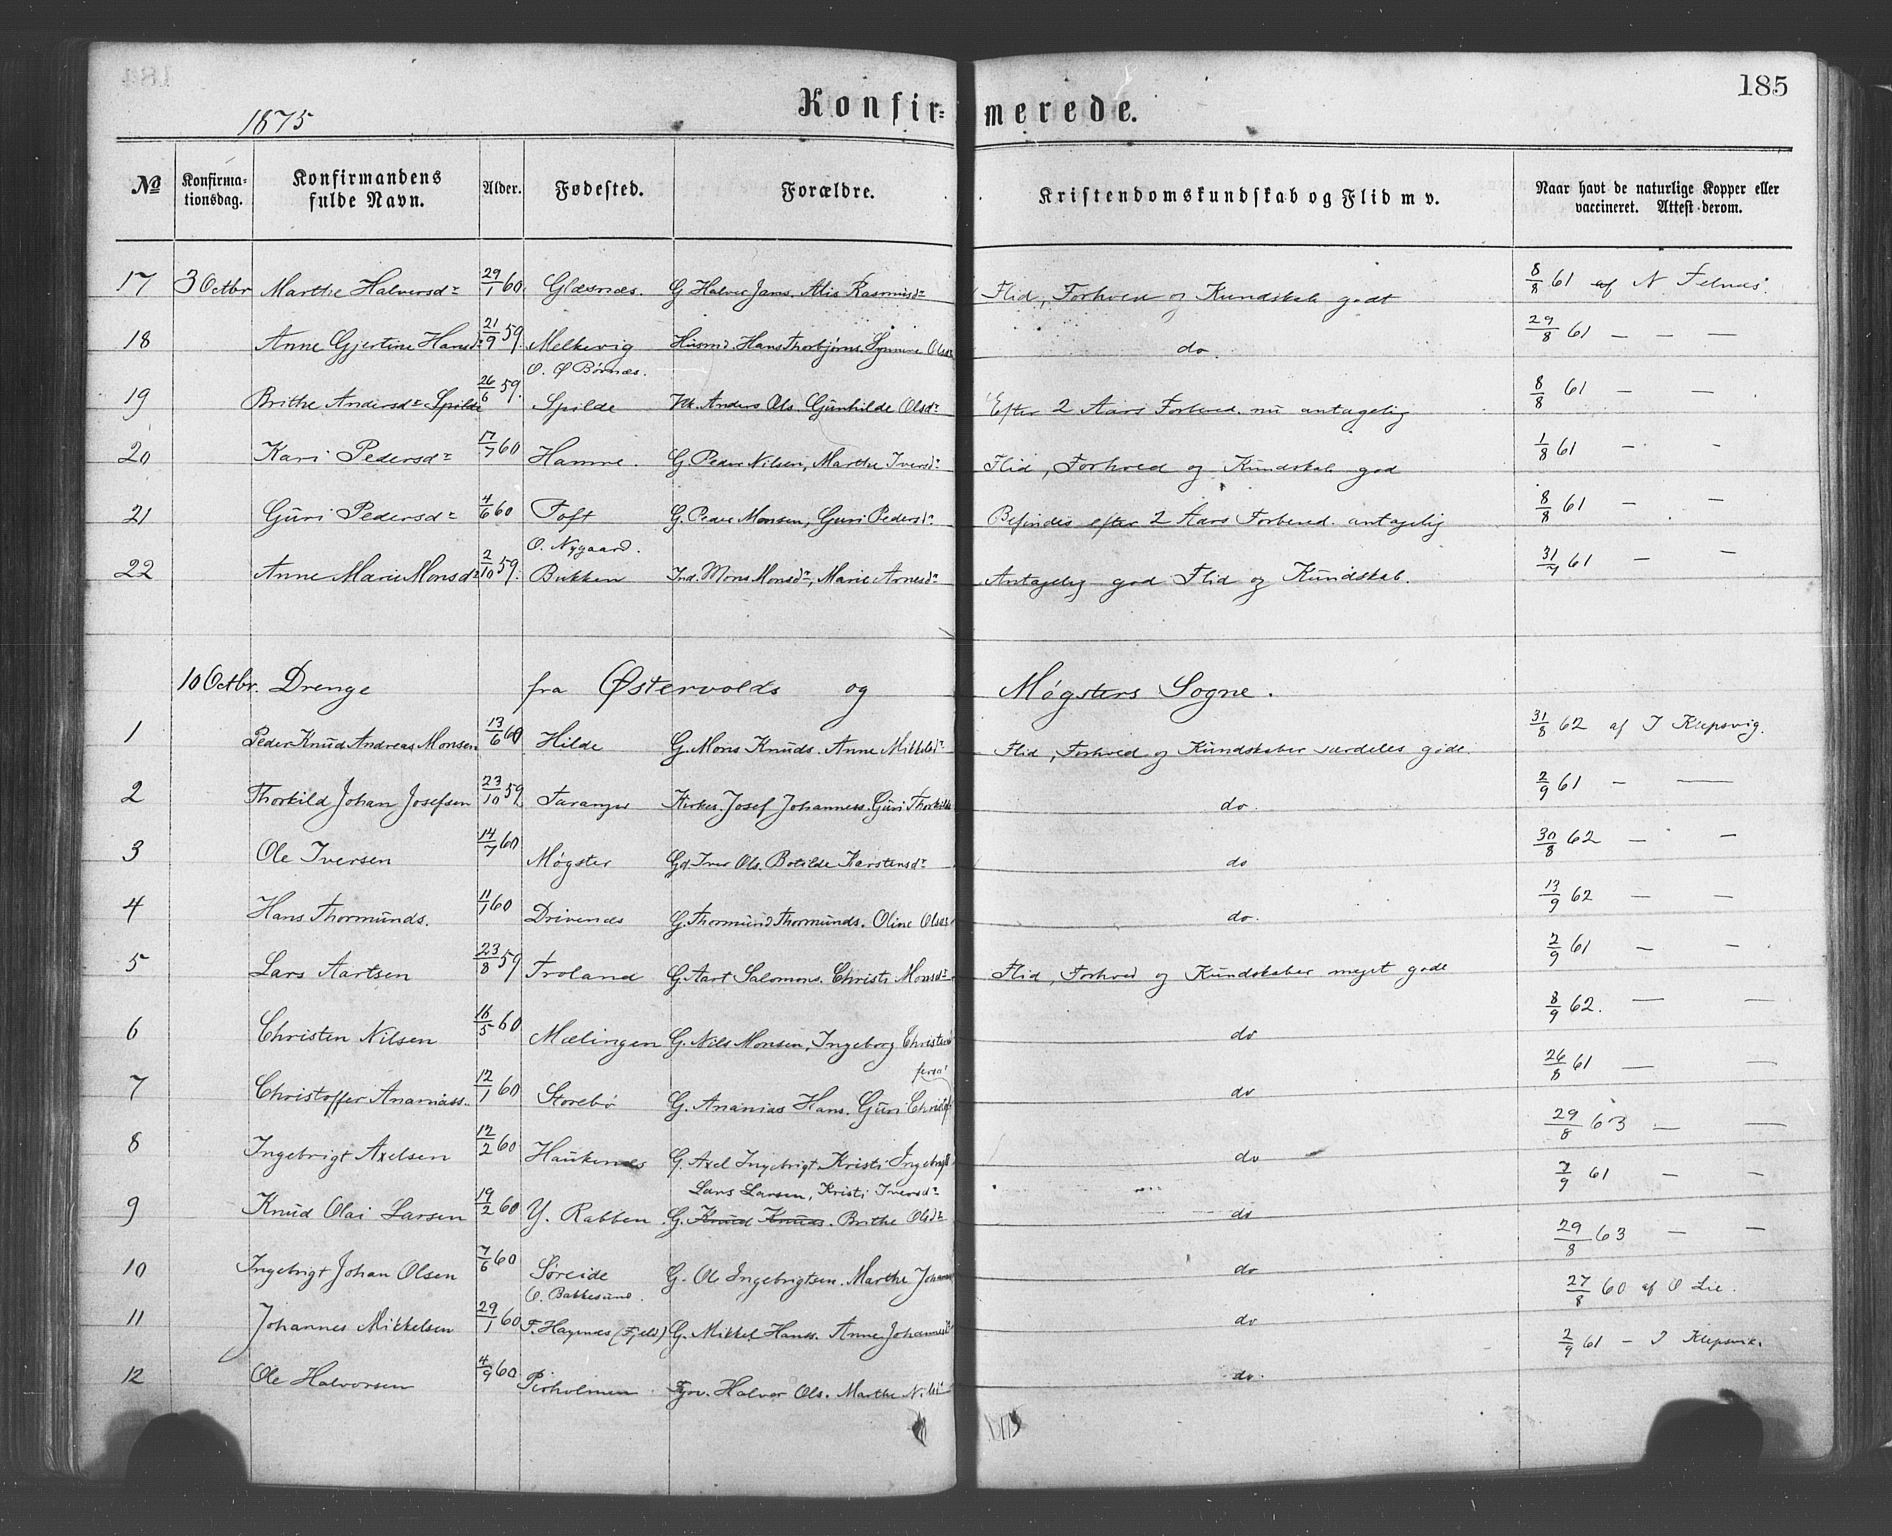 185
1875
Konfirmerede.
No Konfirmationsdag. Konfirmandens fulde Navn. Alder. Fødested. Forældre. Kristendomskundskab og Flid m v. Naar havt de naturlige Kopper eller vaccineret. Attest derom.
17 3 Octbr Marthe Halversdr 29/1 60 Glæsnæs. G Halver Jans. Alis Rasmusdr Flid, Forhold og Kundskab godt 8/8 61 af N
18 Anne Gjertine Hansdr 21/9 59. Melkevig Husmd Hans Thorbjørns. Synneve Olsdr do. 29/8 61 — — —
O. Ø Børnæs.
19 Brithe Andersdr Spilde 26/6 59. Spilde Anders Ols. Gunhilde Olsdr Efter 2 Aars Forbered. nu antagelig 8/8 61 — —
20 Kari Pedersdr 17/7 60 Hamre. G. Peder Nilsen, Marthe Iversdr Flid, Forhold og Kundskab god 1/8 61 — -
21 Guri Pedersdr 4/6 60 Toft G. Peder Monsen, Guri Pedersdr Befindes efter 2 Aars Forbered. antagelig 8/8 61 — -
O. Nygaard.
22 Anne Marie Monsdr 2/10 59. Bukken Ind. Mons Monsdr, Marie Arnesdr Antagelig god Flid og Kundskab. 31/7 61 — —
10 Octbr. Drenge fra Østervolds og Møgsters Sogne.
1 Peder Knud Andreas Monsen 13/6 60 Hilde G. Mons Knuds. Anne Mikkelsdr Flid, Forhold og Kundskaber særdeles gode. 31/8 62 af J Klepsvig.
2 Thorkild Johan Josefsen 23/10 59 Taranger Kirkes. Josef Johanness. Guri Thorkilds do. 2/9 61 — —
3 Ole Iversen 14/7 60 Møgster Gd. Iver Ols. Botilde Karstensdr do 30/8 62 — —
4 Hans Thormunds. 11/1 60 Drivenæs G. Thormund Thormunds. Oline Olsdr do. 13/9 62 — —
5 Lars Aartsen 23/8 59 Troland G. Aart Salomons. Christi Monsdr Flid, Forhold og Kundskaber meget gode 2/9 61 — —
6 Christen Nilsen 16/5 60 Mælingen G. Nils Monsen, Ingeborg Christens do 8/9 62. — —
7 Christoffer Ananiass. 12/1 60 Storebø G. Ananias Hans. Guri Christof do 26/8 61 — —
8 Ingebrigt Axelsen 12/2 60 Haukenæs G. Axel Ingebrigt. Kristi Ingebrigts do 29/8 63 — —
Lars Larsen, Kristi Iversdr
9 Knud Olai Larsen 19/2 60 Y. Rabben G. Knud Knuds. Brithe Olsdr do 7/9 61 — —
10 Ingebrigt Johan Olsen 7/6 60 Søreide G. Ole Ingebrigtsen. Marthe Johann do 29/8 63 — —
O. Bakkesund.
11 Johannes Mikkelsen 29/1 60 (Fjeld) G. Mikkel Hanss. Anne Johannesdr do 27/8 60 af O Lie.
12 Ole Halvorsen 4/9 60 Pirholmen Halvor Ols. Marthe Nilsdr do. 2/9 61 — J Klepsvik.